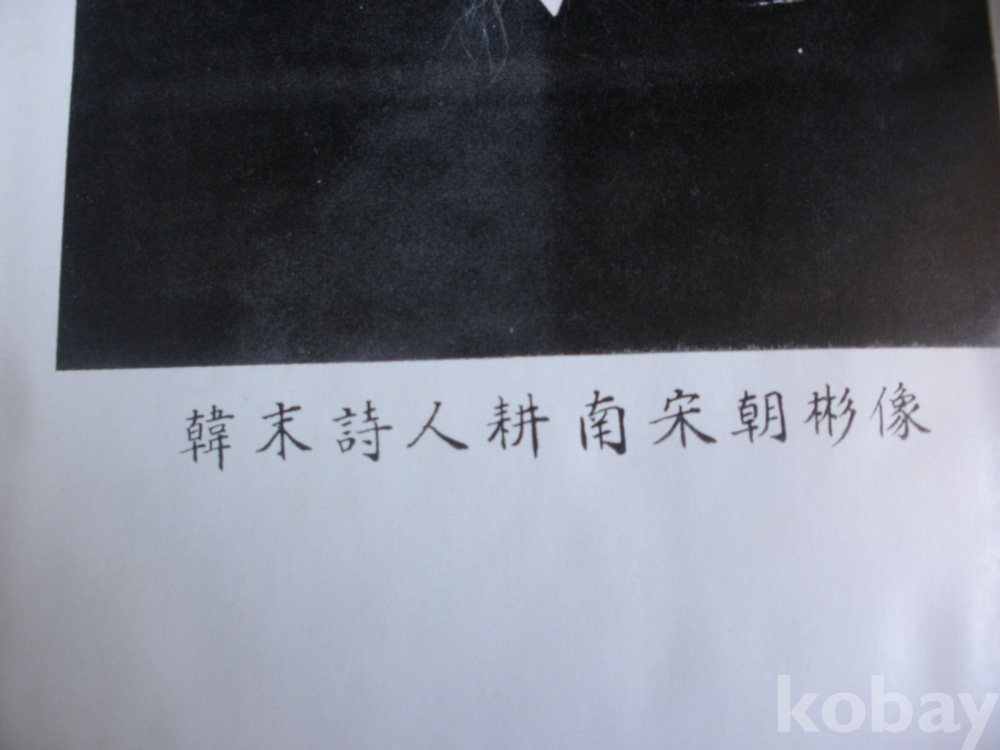 韓末詩人耕南宋朝彬像
kobay